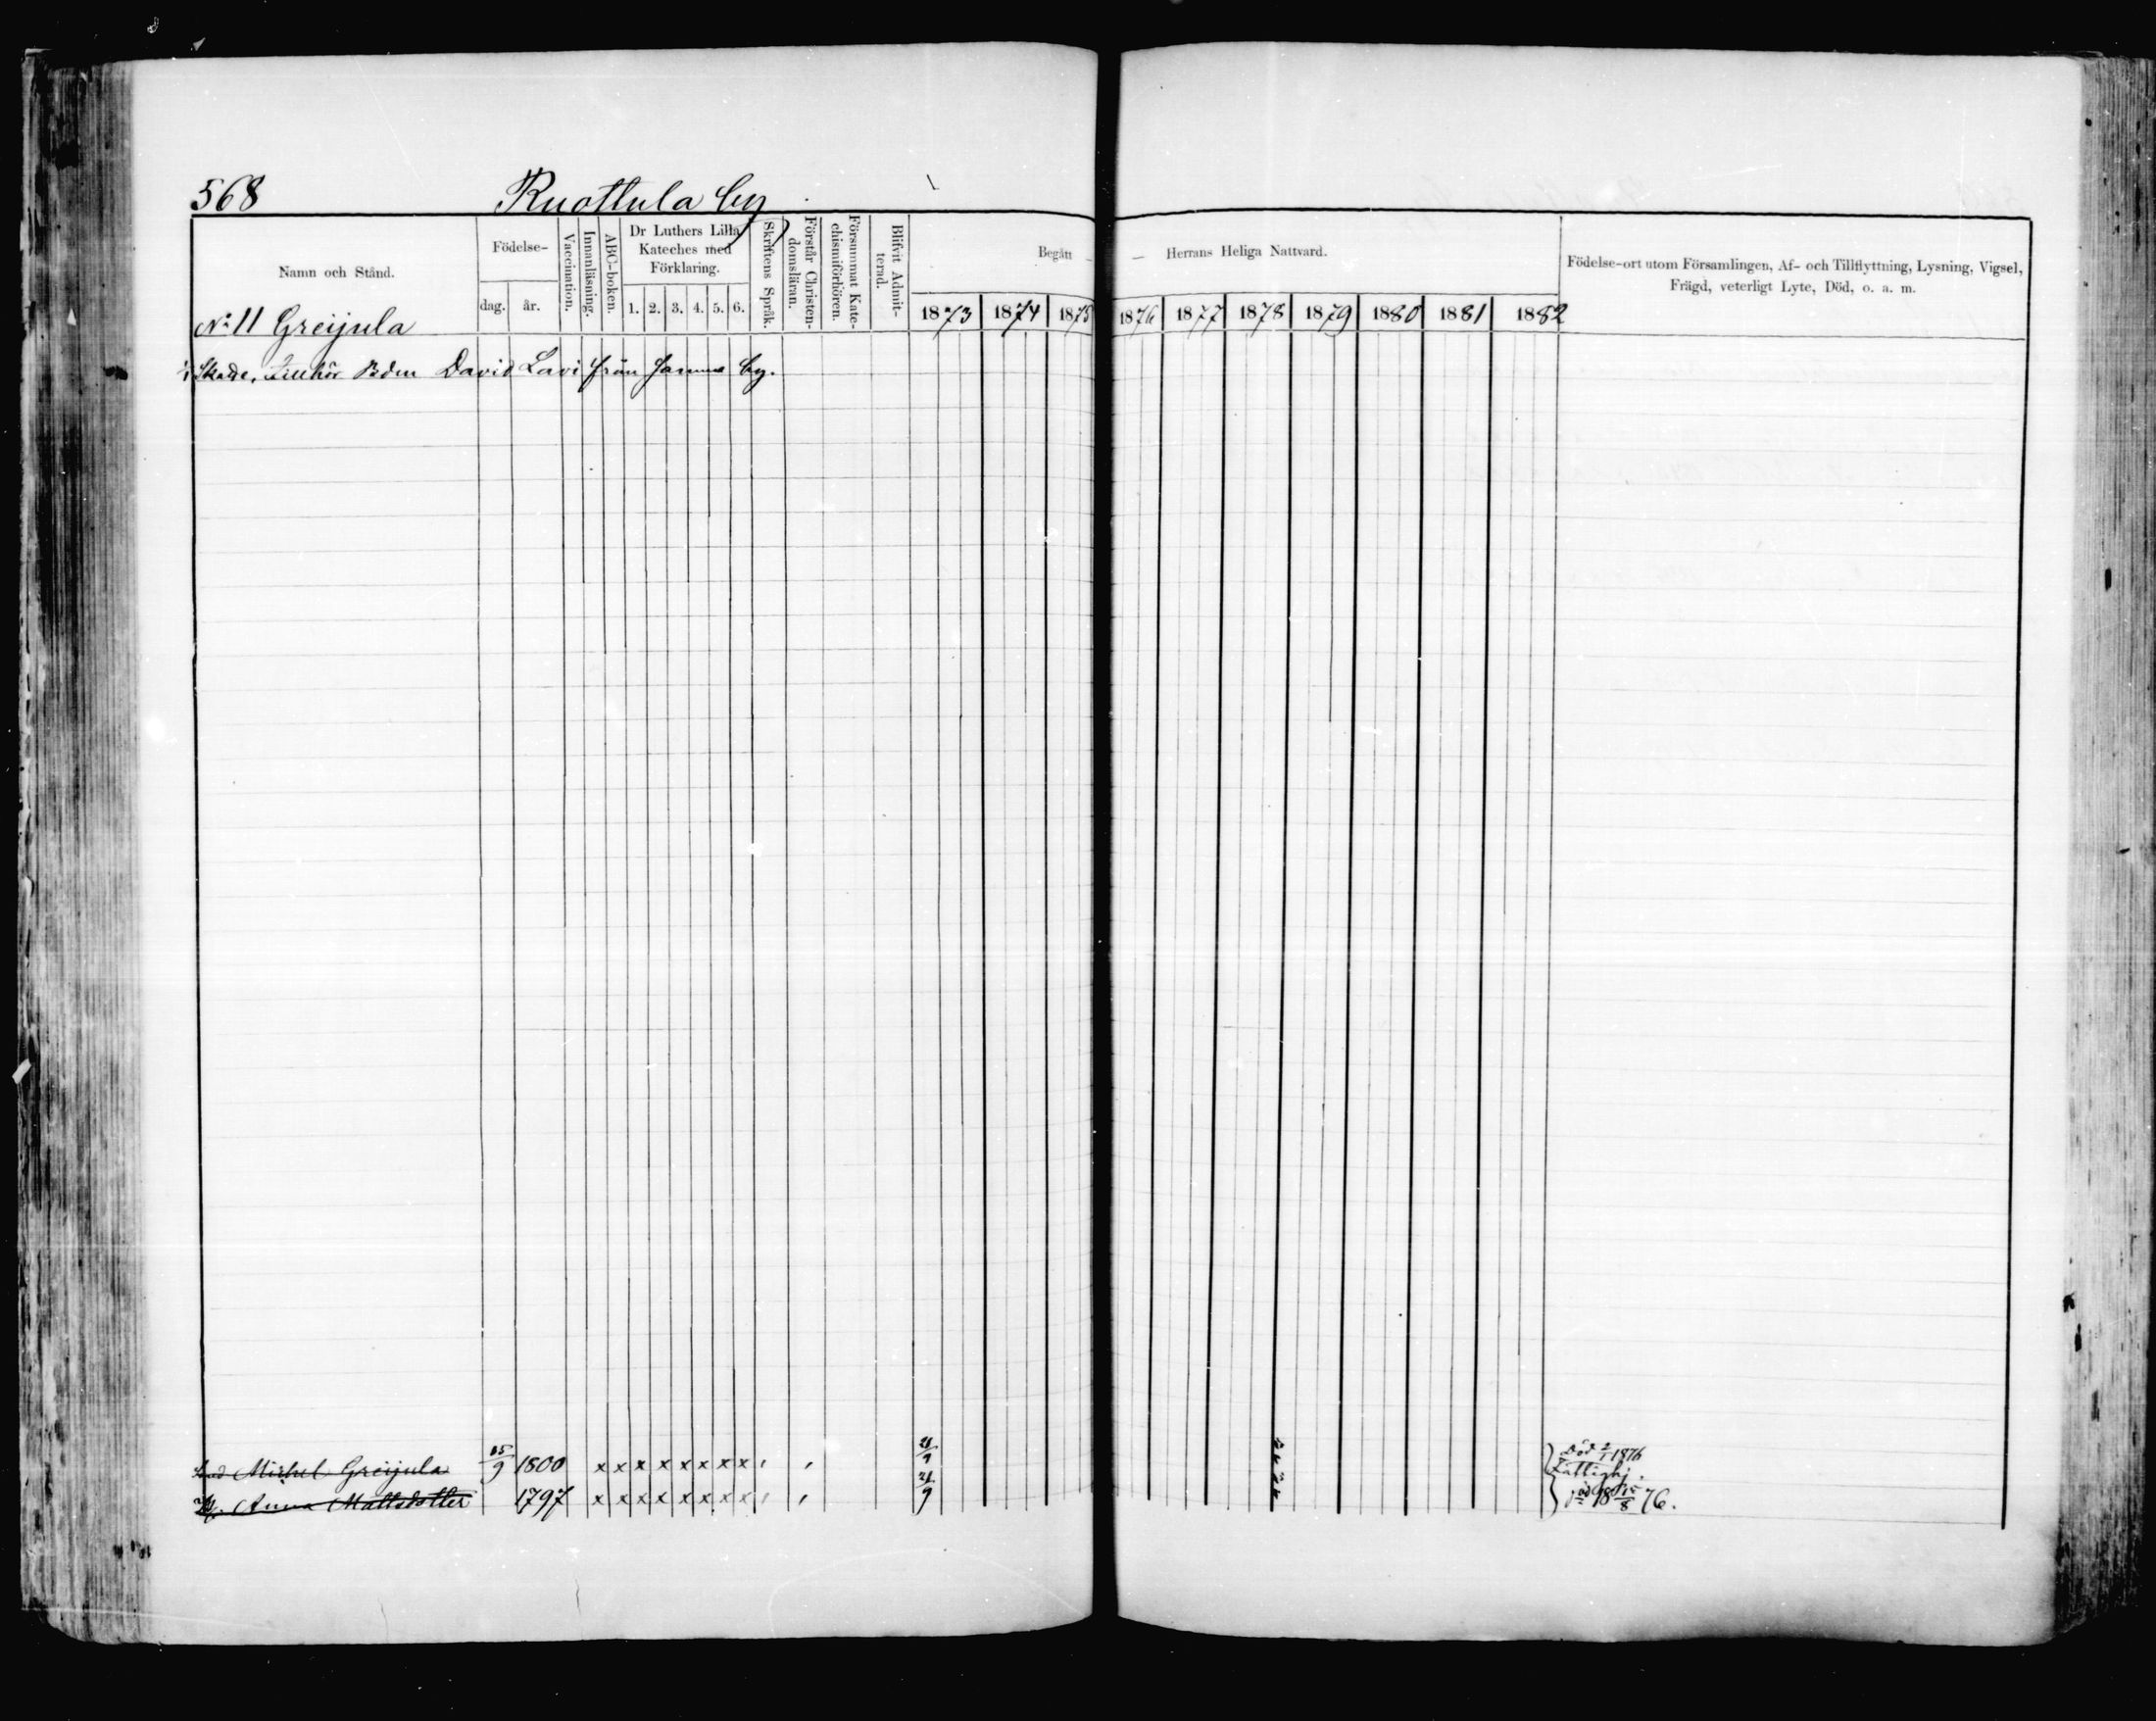 568 Ruottula by
Namn och Stånd.
Födelse-
dag.
år.
Vaccination.
Innanläsning.
ABC-boken.
Dr Luthers Lilla
Kateches med
Förklaring.
1. 2. 3. 4. 5. 6.
Skriftens Språk.
Förstår Christen-
domsläran.
Försummat Kate-
chismiförhören.
Blifvit Admit-
terad.
Begått — — Herrans Heliga Nattvard.
1873 1874 1875 1876 1877 1878 1879 1880 1881 1882
Födelse-ort utom Församlingen, Af- och Tillflyttning, Lysning, Vigsel,
Frägd, veterligt Lyte, Död, o. a. m.
No 11 Greijula
David Lavi från samma by.
Michel Greijula 15/9 1800 x x x x x x x x Död 2/1 1876
Fattighj.
Anna Mattsdotter 1797 x x x x x x x x 18 15/8 76.